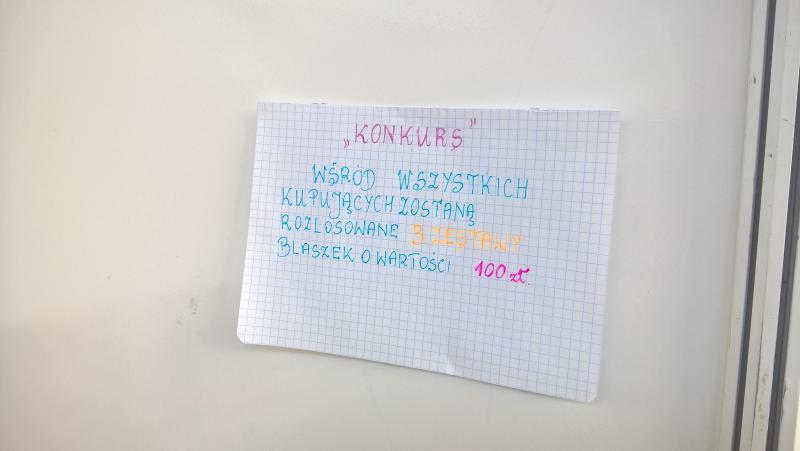 „KONKURS"
WŚRÓD WSZYSTKICH
KUPUJĄCYCH ZOSTANĄ
ROZLOSOWANE 3 ZESTAWY
BLASZEK O WARTOŚCI 100 zł.